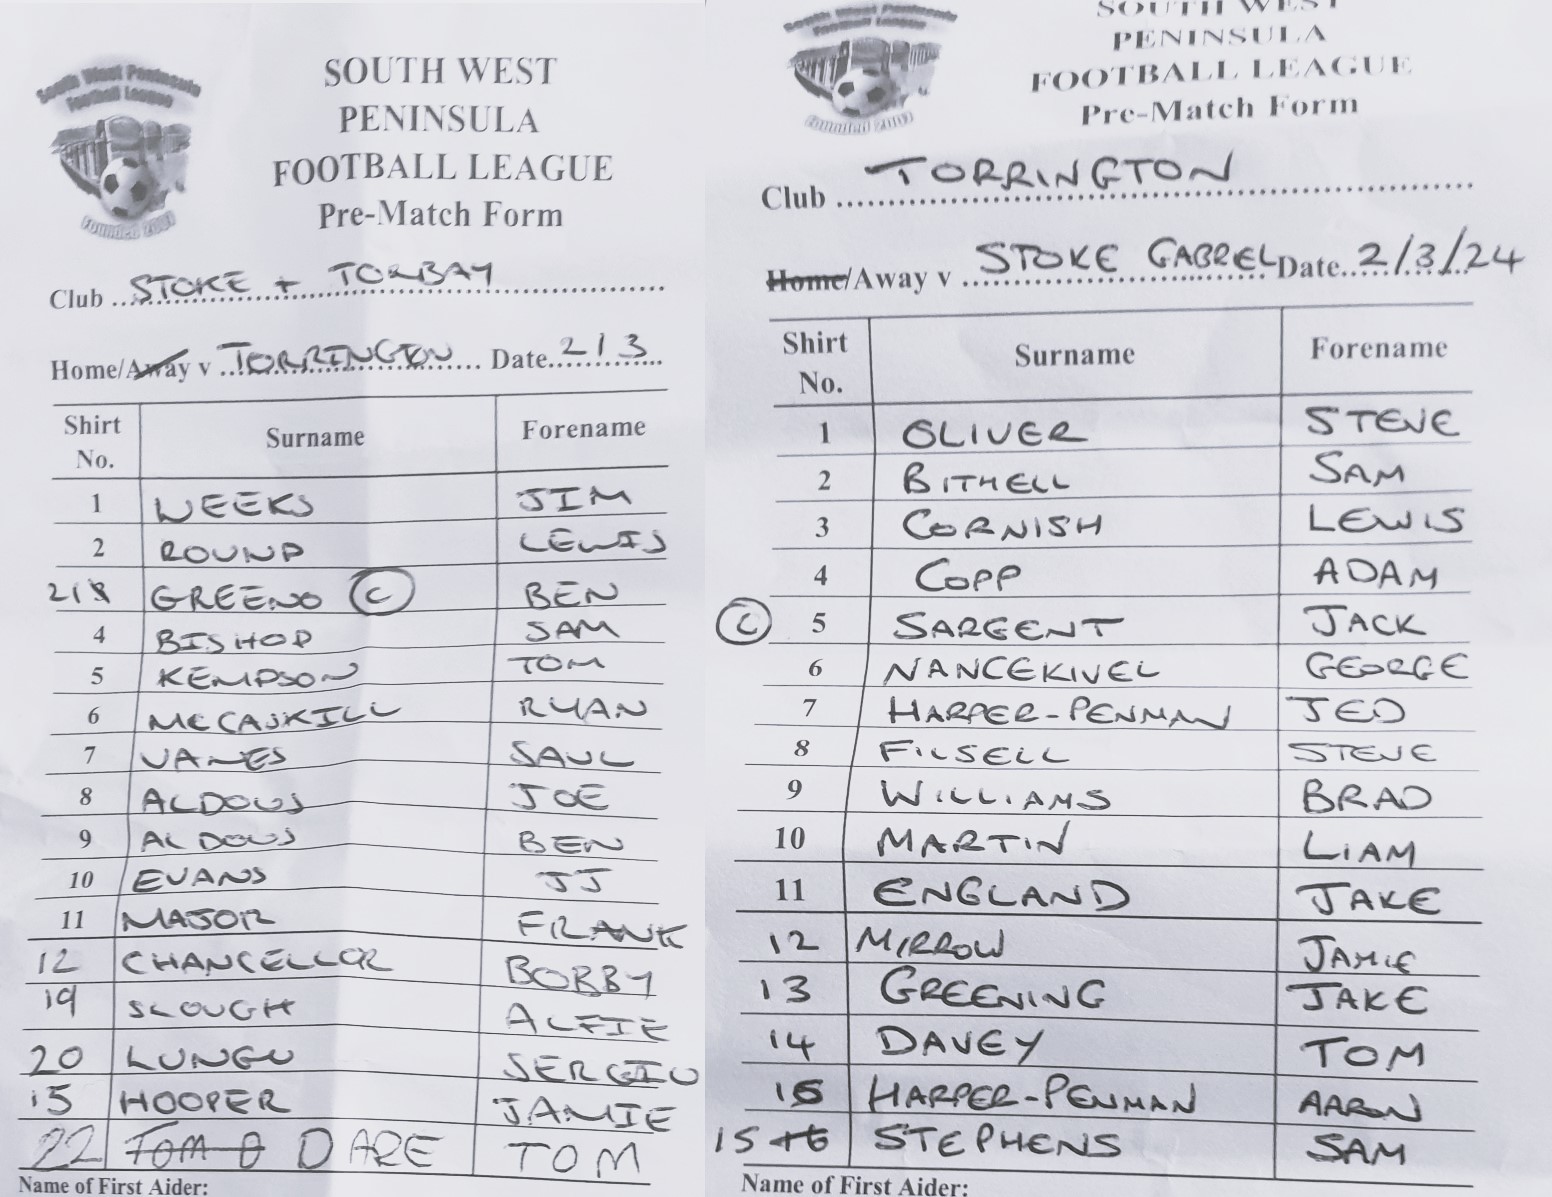 South West Peninsula
Football League
Founded 2007
SOUTH WEST
PENINSULA
FOOTBALL LEAGUE
Pre-Match Form
Club STOKE + TORBAY
Home/Away v TORRINGTON Date 2/3
Shirt No. Surname Forename
1 WEEKS JIM
2 ROUND LEWIS
218 GREENO (C) BEN
4 BISHOP SAM
5 KEMPSON TOM
6 MCCASKILL RYAN
7 VANES SAUL
8 ALDOUS JOE
9 ALDOUS BEN
10 EVANS JJ
11 MAJOR FRANK
12 CHANCELLOR BOBBY
19 SLOUGH ALFIE
20 LUNGU SERGIU
15 HOOPER JAMIE
22 TOM D DARE TOM
Name of First Aider:
South West Peninsula
Football League
Founded 2007
SOUTH WEST
PENINSULA
FOOTBALL LEAGUE
Pre-Match Form
Club TORRINGTON
Home/Away v STOKE GABREL Date 2/3/24
Shirt No. Surname Forename
1 OLIVER STEVE
2 BITHELL SAM
3 CORNISH LEWIS
4 COPP ADAM
(C) 5 SARGENT JACK
6 NANCEKIVEL GEORGE
7 HARPER-PENMAN JED
8 FILSELL STEVE
9 WILLIAMS BRAD
10 MARTIN LIAM
11 ENGLAND JAKE
12 MIRROW JAMIE
13 GREENING JAKE
14 DAVEY TOM
16 HARPER-PENMAN AARON
15 16 STEPHENS SAM
Name of First Aider: